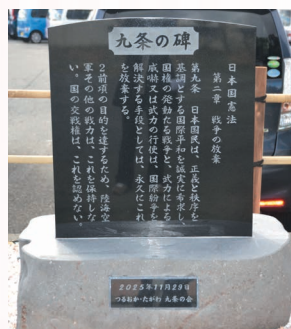 九条の碑
日本国憲法
第二章　戦争の放棄
第九条　日本国民は、正義と秩序を
基調とする国際平和を誠実に希求し、
国権の発動たる戦争と、武力による
威嚇又は武力の行使は、国際紛争を
解決する手段としては、永久にこれ
を放棄する。
２前項の目的を達するため、陸海空
軍その他の戦力は、これを保持しな
い。国の交戦権は、これを認めない。
2025年11月29日
つるおか・たがわ 九条の会